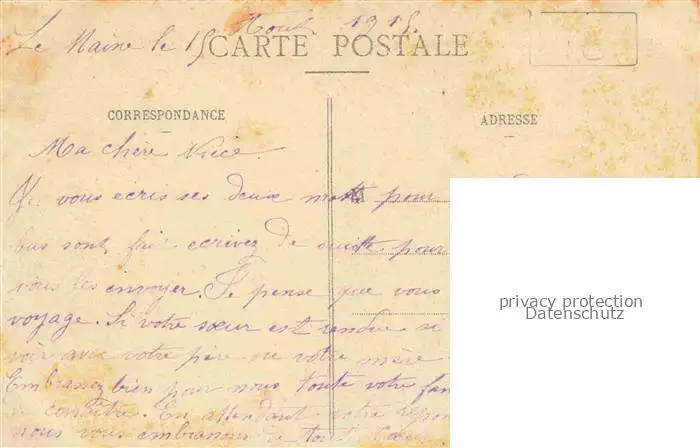 Le Maine le 15 Aout 1915.
CARTE POSTALE
CORRESPONDANCE
ADRESSE
Ma chère Niece.
Je vous ecris ses deux mots pour
bas sont fai ecrivez de suite pour
vous les envoyer. Je pense que vous
voyage. Si votre sœur est rendue si
voir avec votre père ou votre mère
Embrassez bien pour nous toute votre fam
En attendant votre repon
nous vous embrassons de tout Cœur.
privacy protection
Datenschutz